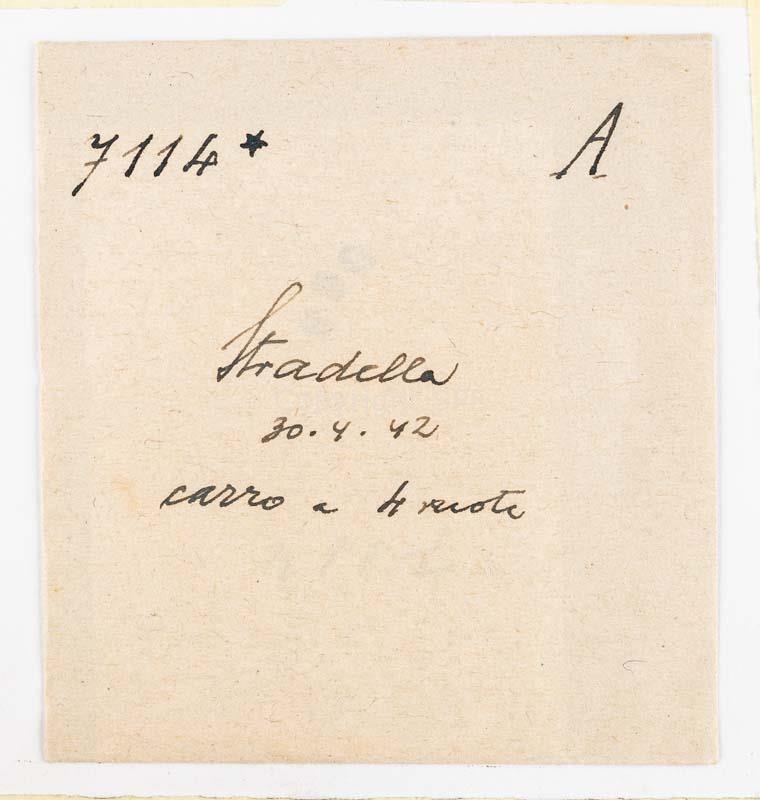 7114* A
Stradella
30.4.42
carro a 4 ruote